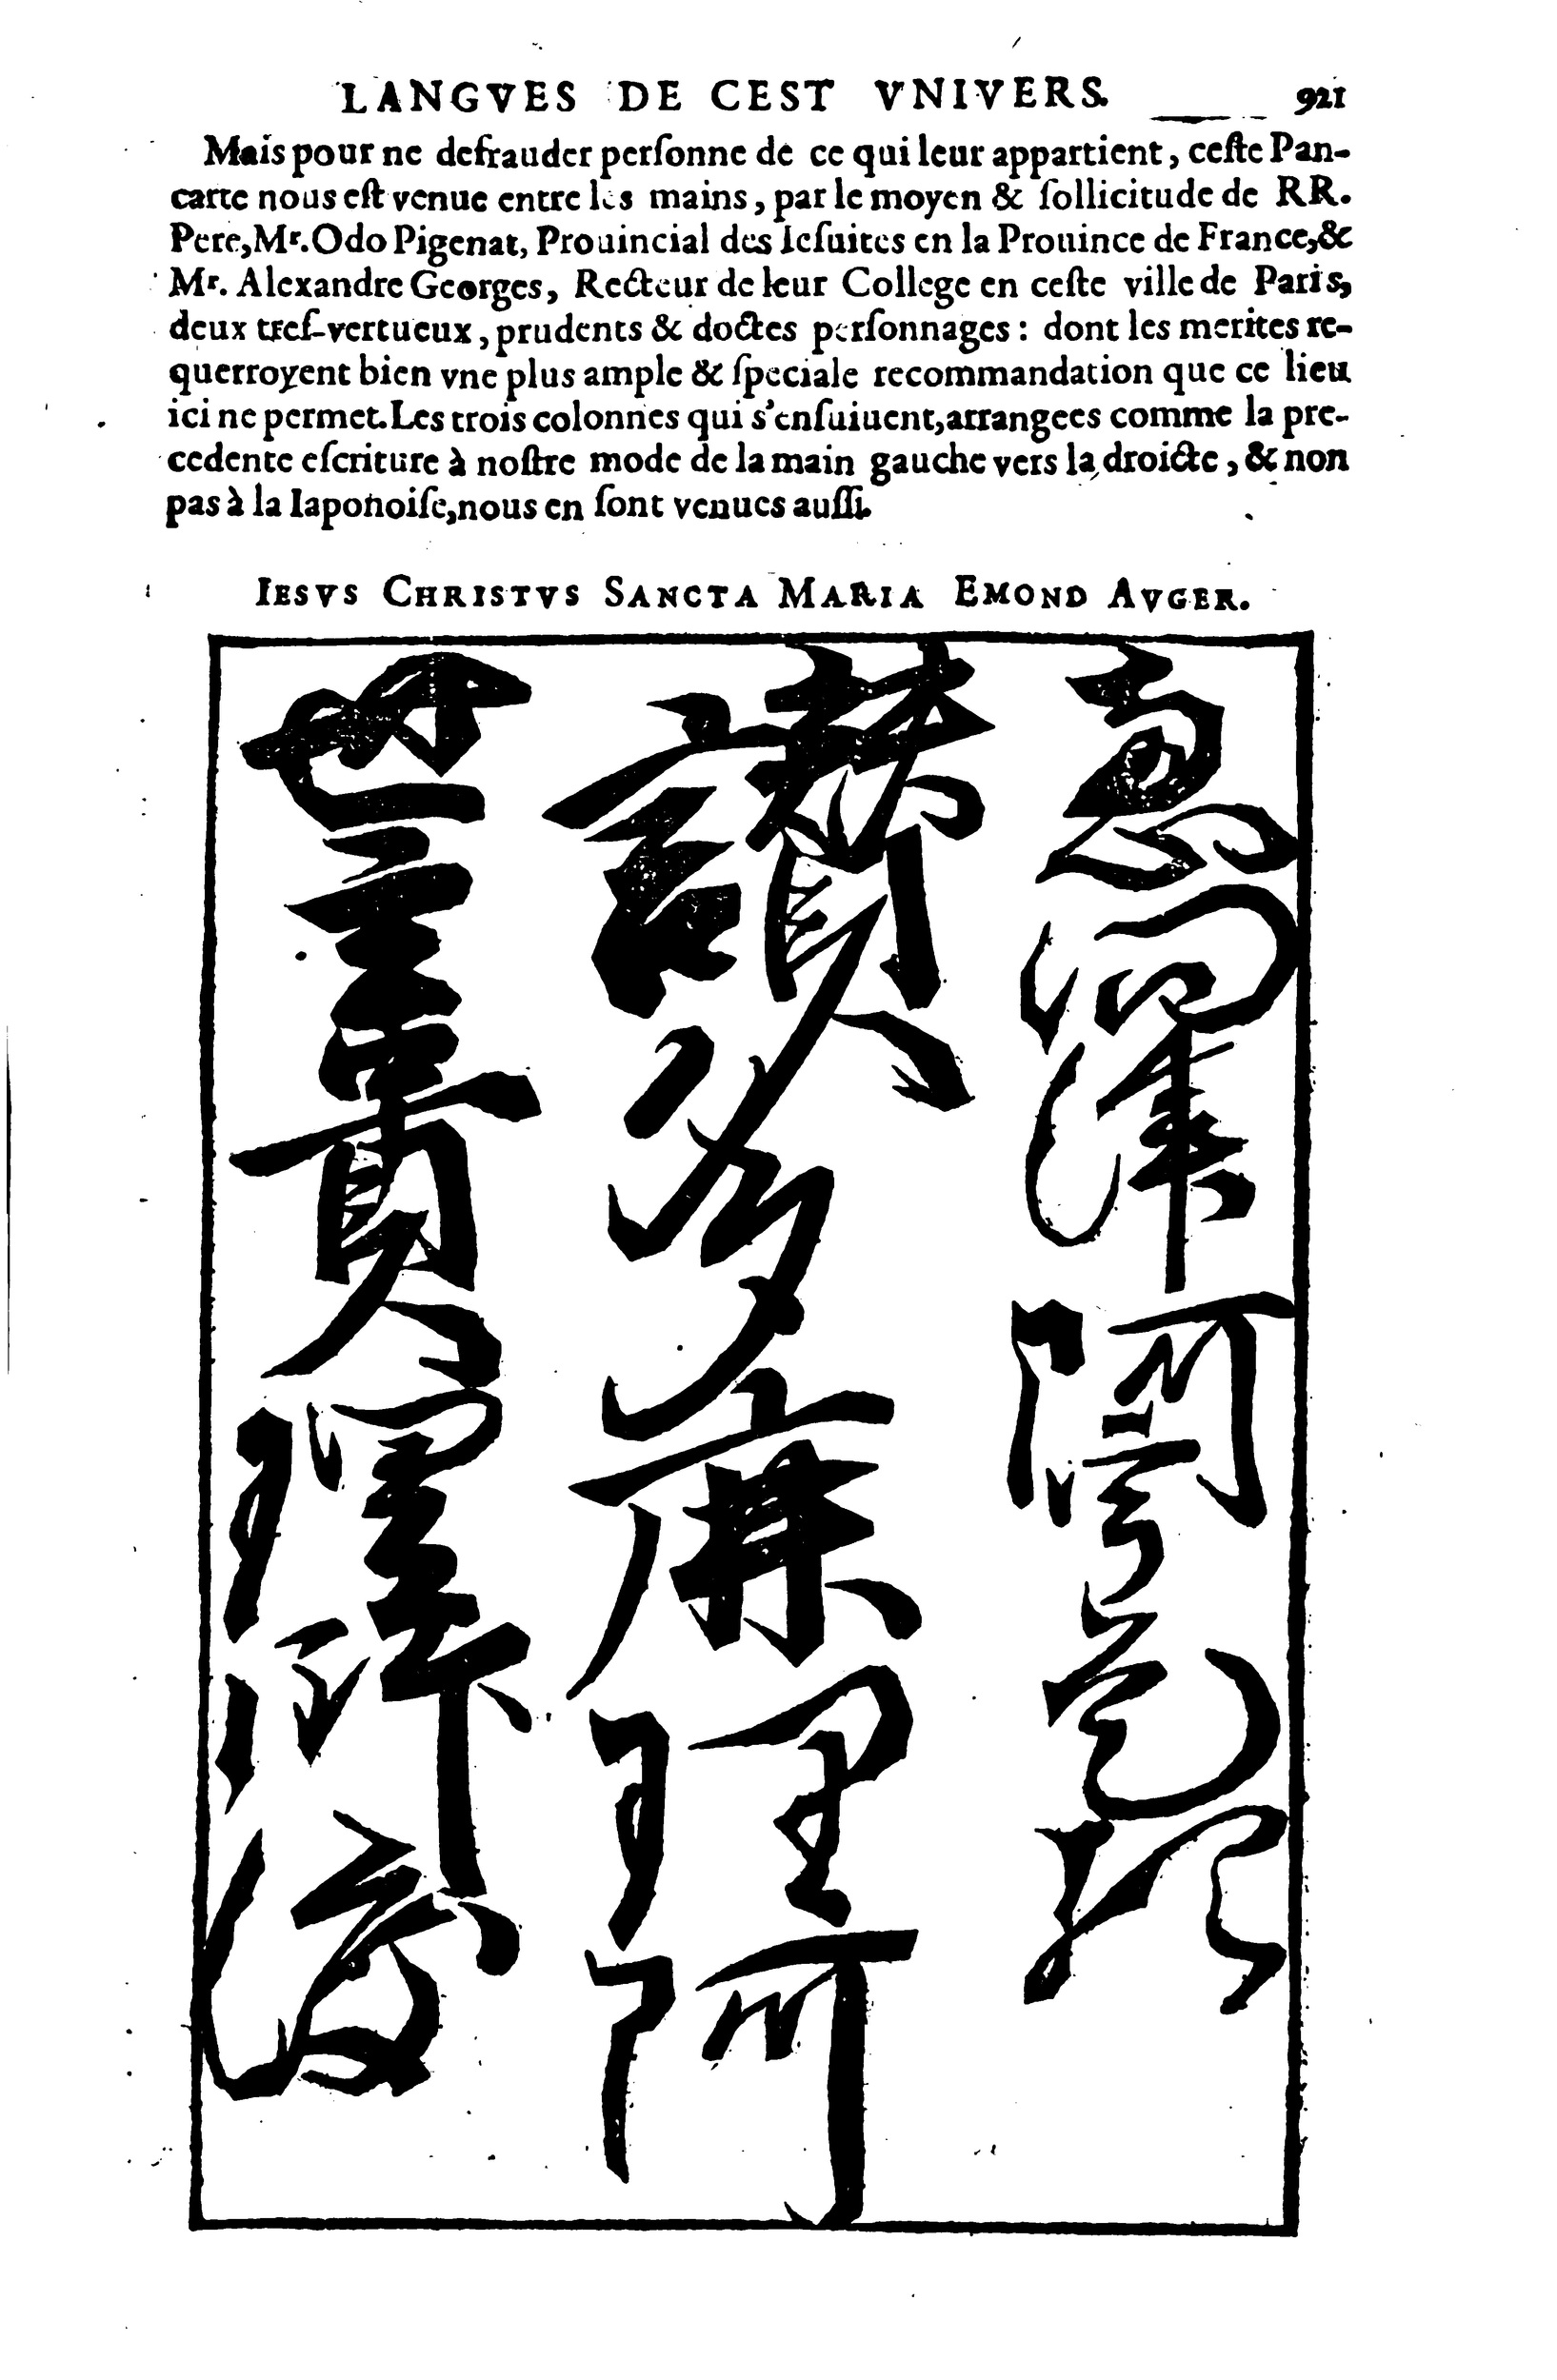 LANGVES DE CEST VNIVERS. 921
Mais pour ne defrauder perſonne de ce qui leur appartient, ceſte Pan-
carte nous eſt venue entre les mains, par le moyen & ſollicitude de RR.
Pere, Mr. Odo Pigenat, Prouincial des Ieſuites en la Prouince de France, &
Mr. Alexandre Georges, Recteur de leur College en ceſte ville de Paris,
deux treſ-vertueux, prudents & doctes perſonnages : dont les merites re-
querroyent bien vne plus ample & ſpeciale recommandation que ce lieu
ici ne permet. Les trois colonnes qui s'enſuiuent, arrangees comme la pre-
cedente eſcriture à noſtre mode de la main gauche vers la droicte, & non
pas à la Iaponoiſe, nous en ſont venues auſſi.
IESVS CHRISTVS SANCTA MARIA EMOND AVGER.
世主貴理師渡
讚多麻理阿
恵門津阿